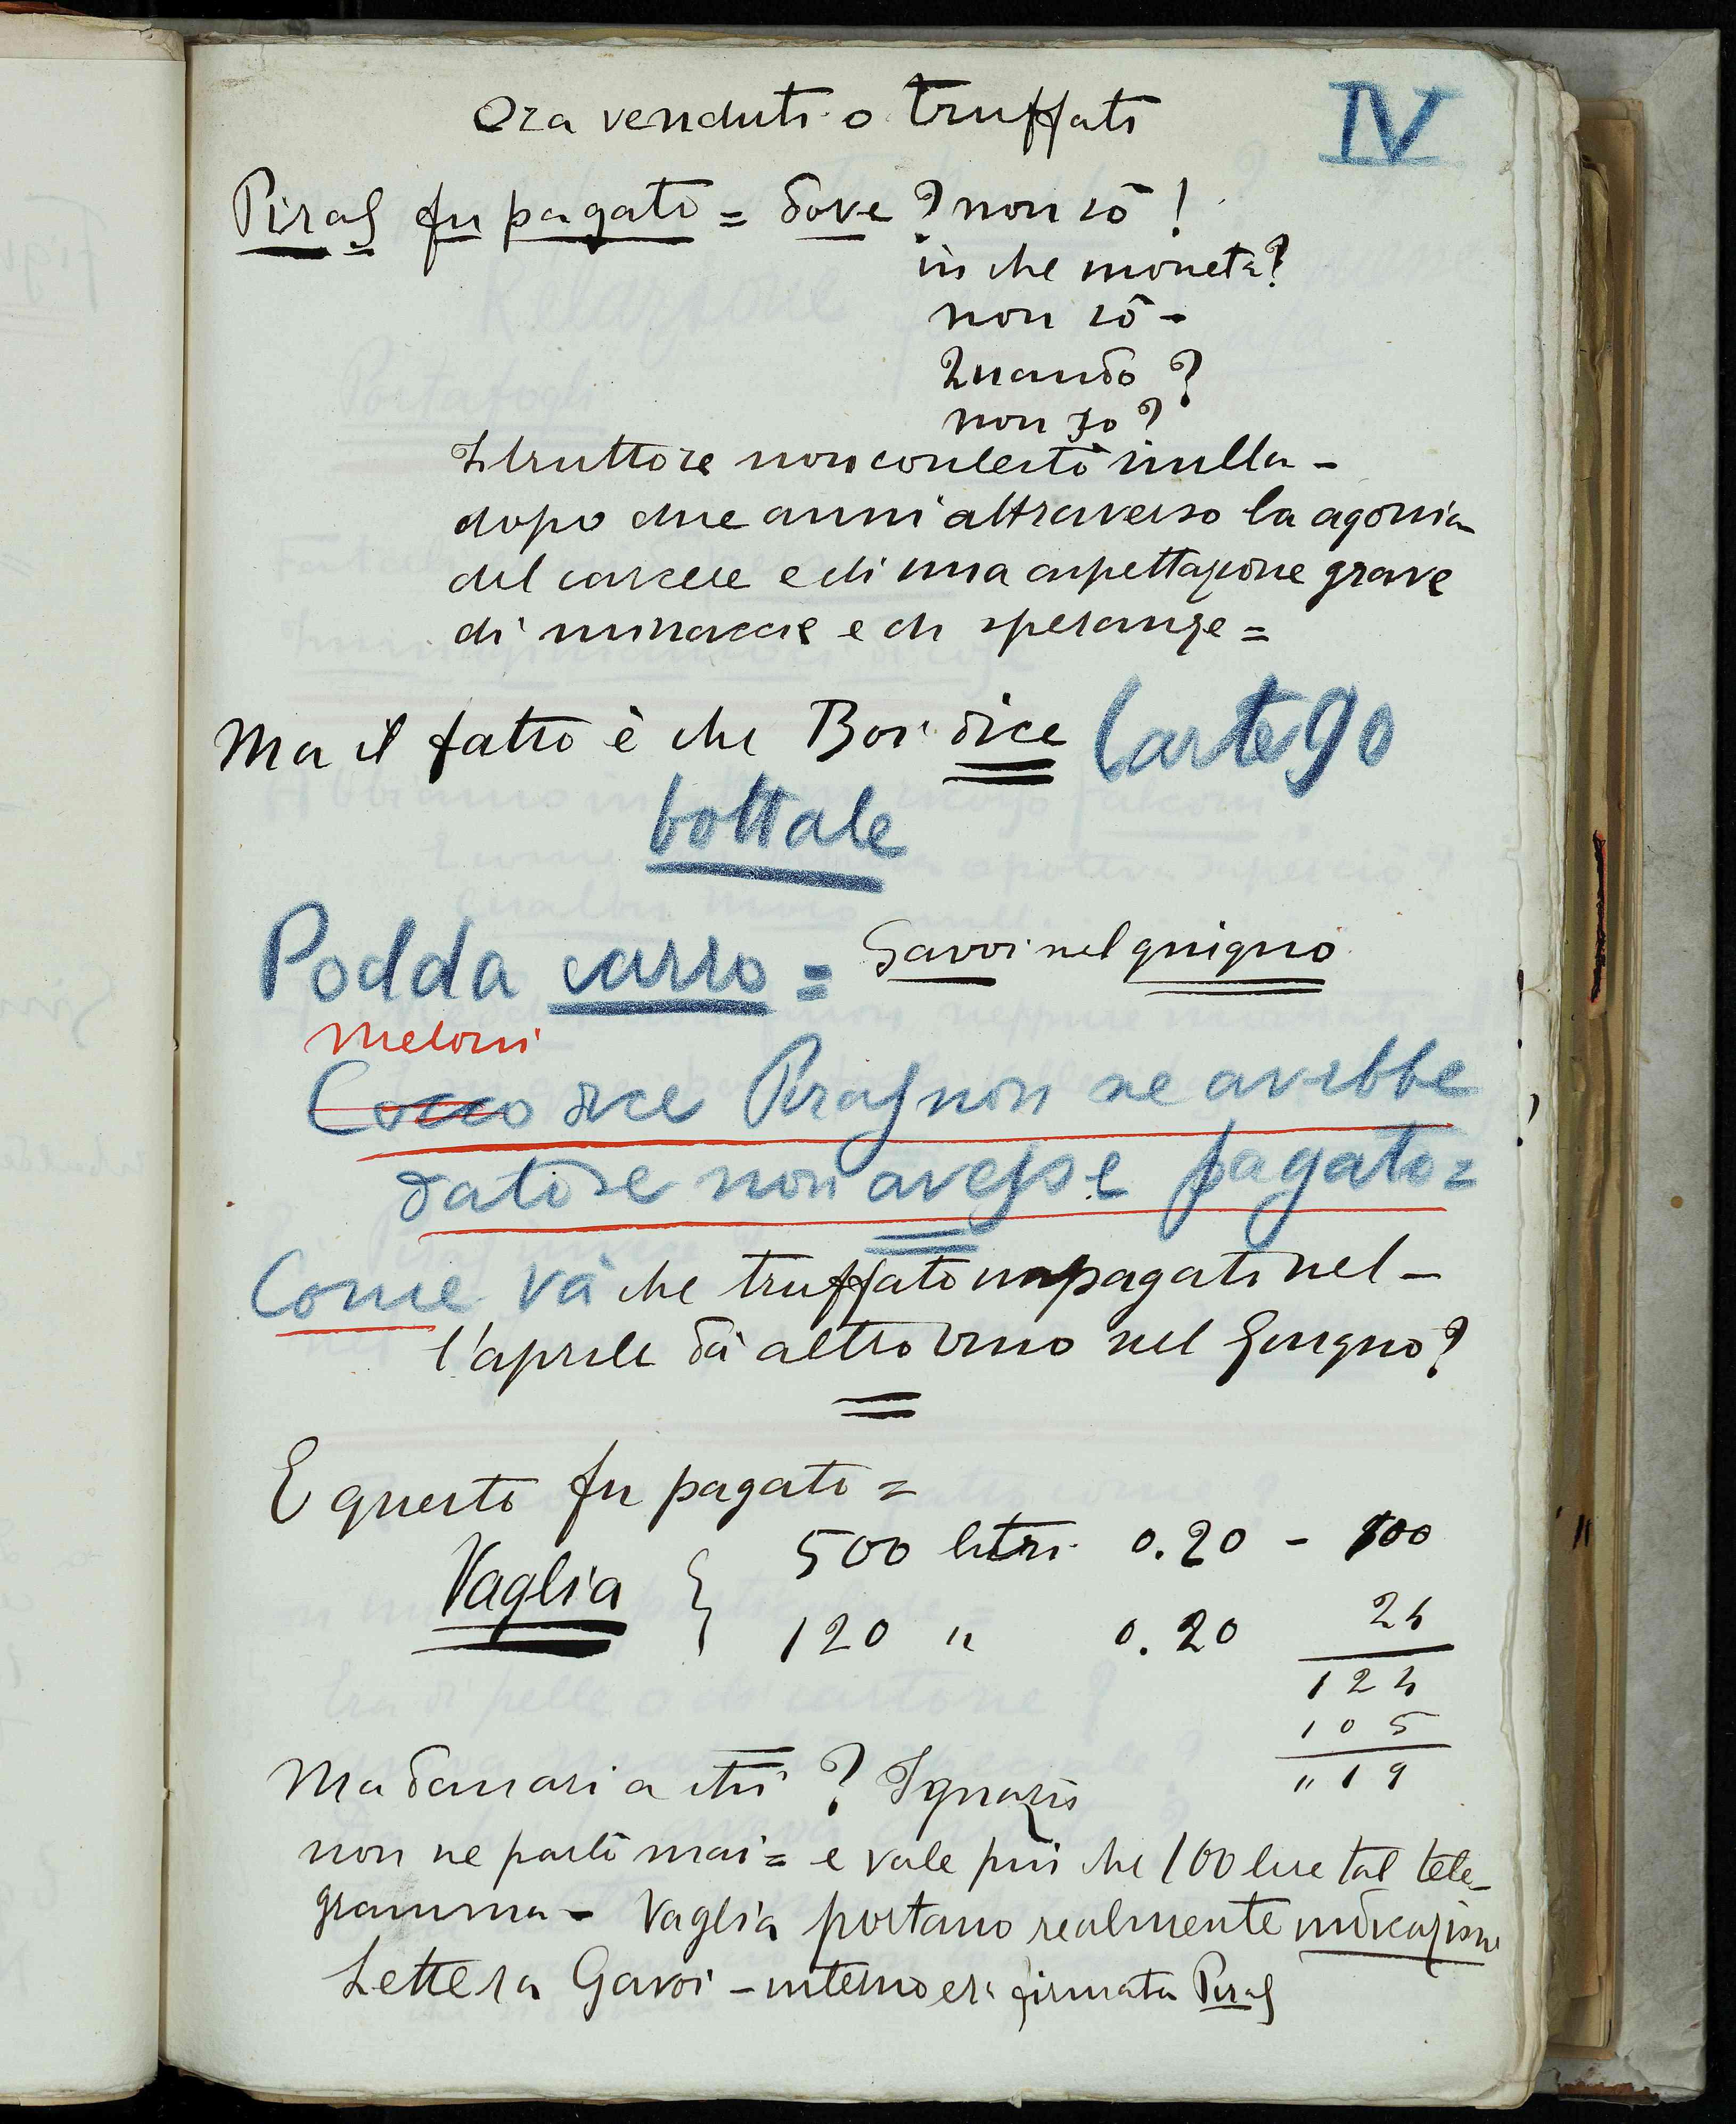 Ora venduti o truffati
IV
Piras fu pagato = dove? non sò!
in che moneta?
non sò -
Quando?
non so?
Istruttore non contestò nulla -
dopo due anni attraverso la agonia
del carcere e di una aspettazione grave
di minaccie e di speranze =
Ma il fatto è che Boi dice Carte 90
bottale
Podda carro = Gavoi nel giugno
Meloni
Cocco dice Piras non ne avrebbe
dato se non avesse pagato =
Come và che truffato impagato nel-
l'aprile dà altro vino nel Giugno?
E questo fu pagato =
Vaglia { 500 litri 0.20 - 100
120 " 0.20 24
124
105
" 19
Ma danari a chi? Ignazio
non ne parlò mai = e vale più che 100 lire tal tele-
gramma - Vaglia portano realmente indicazione
Lettera Gavoi - interno era firmata Piras